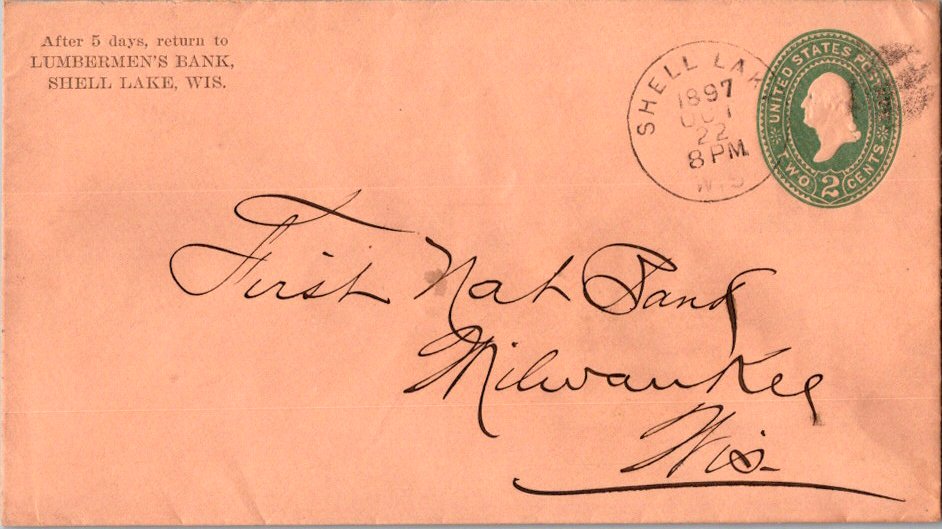 After 5 days, return to
LUMBERMEN'S BANK,
SHELL LAKE, WIS.
SHELL LAK
1897
OCT
22
8 PM
WIS
UNITED STATES POST
TWO 2 CENTS
First Nat Bank
Milwaukee
Wis.